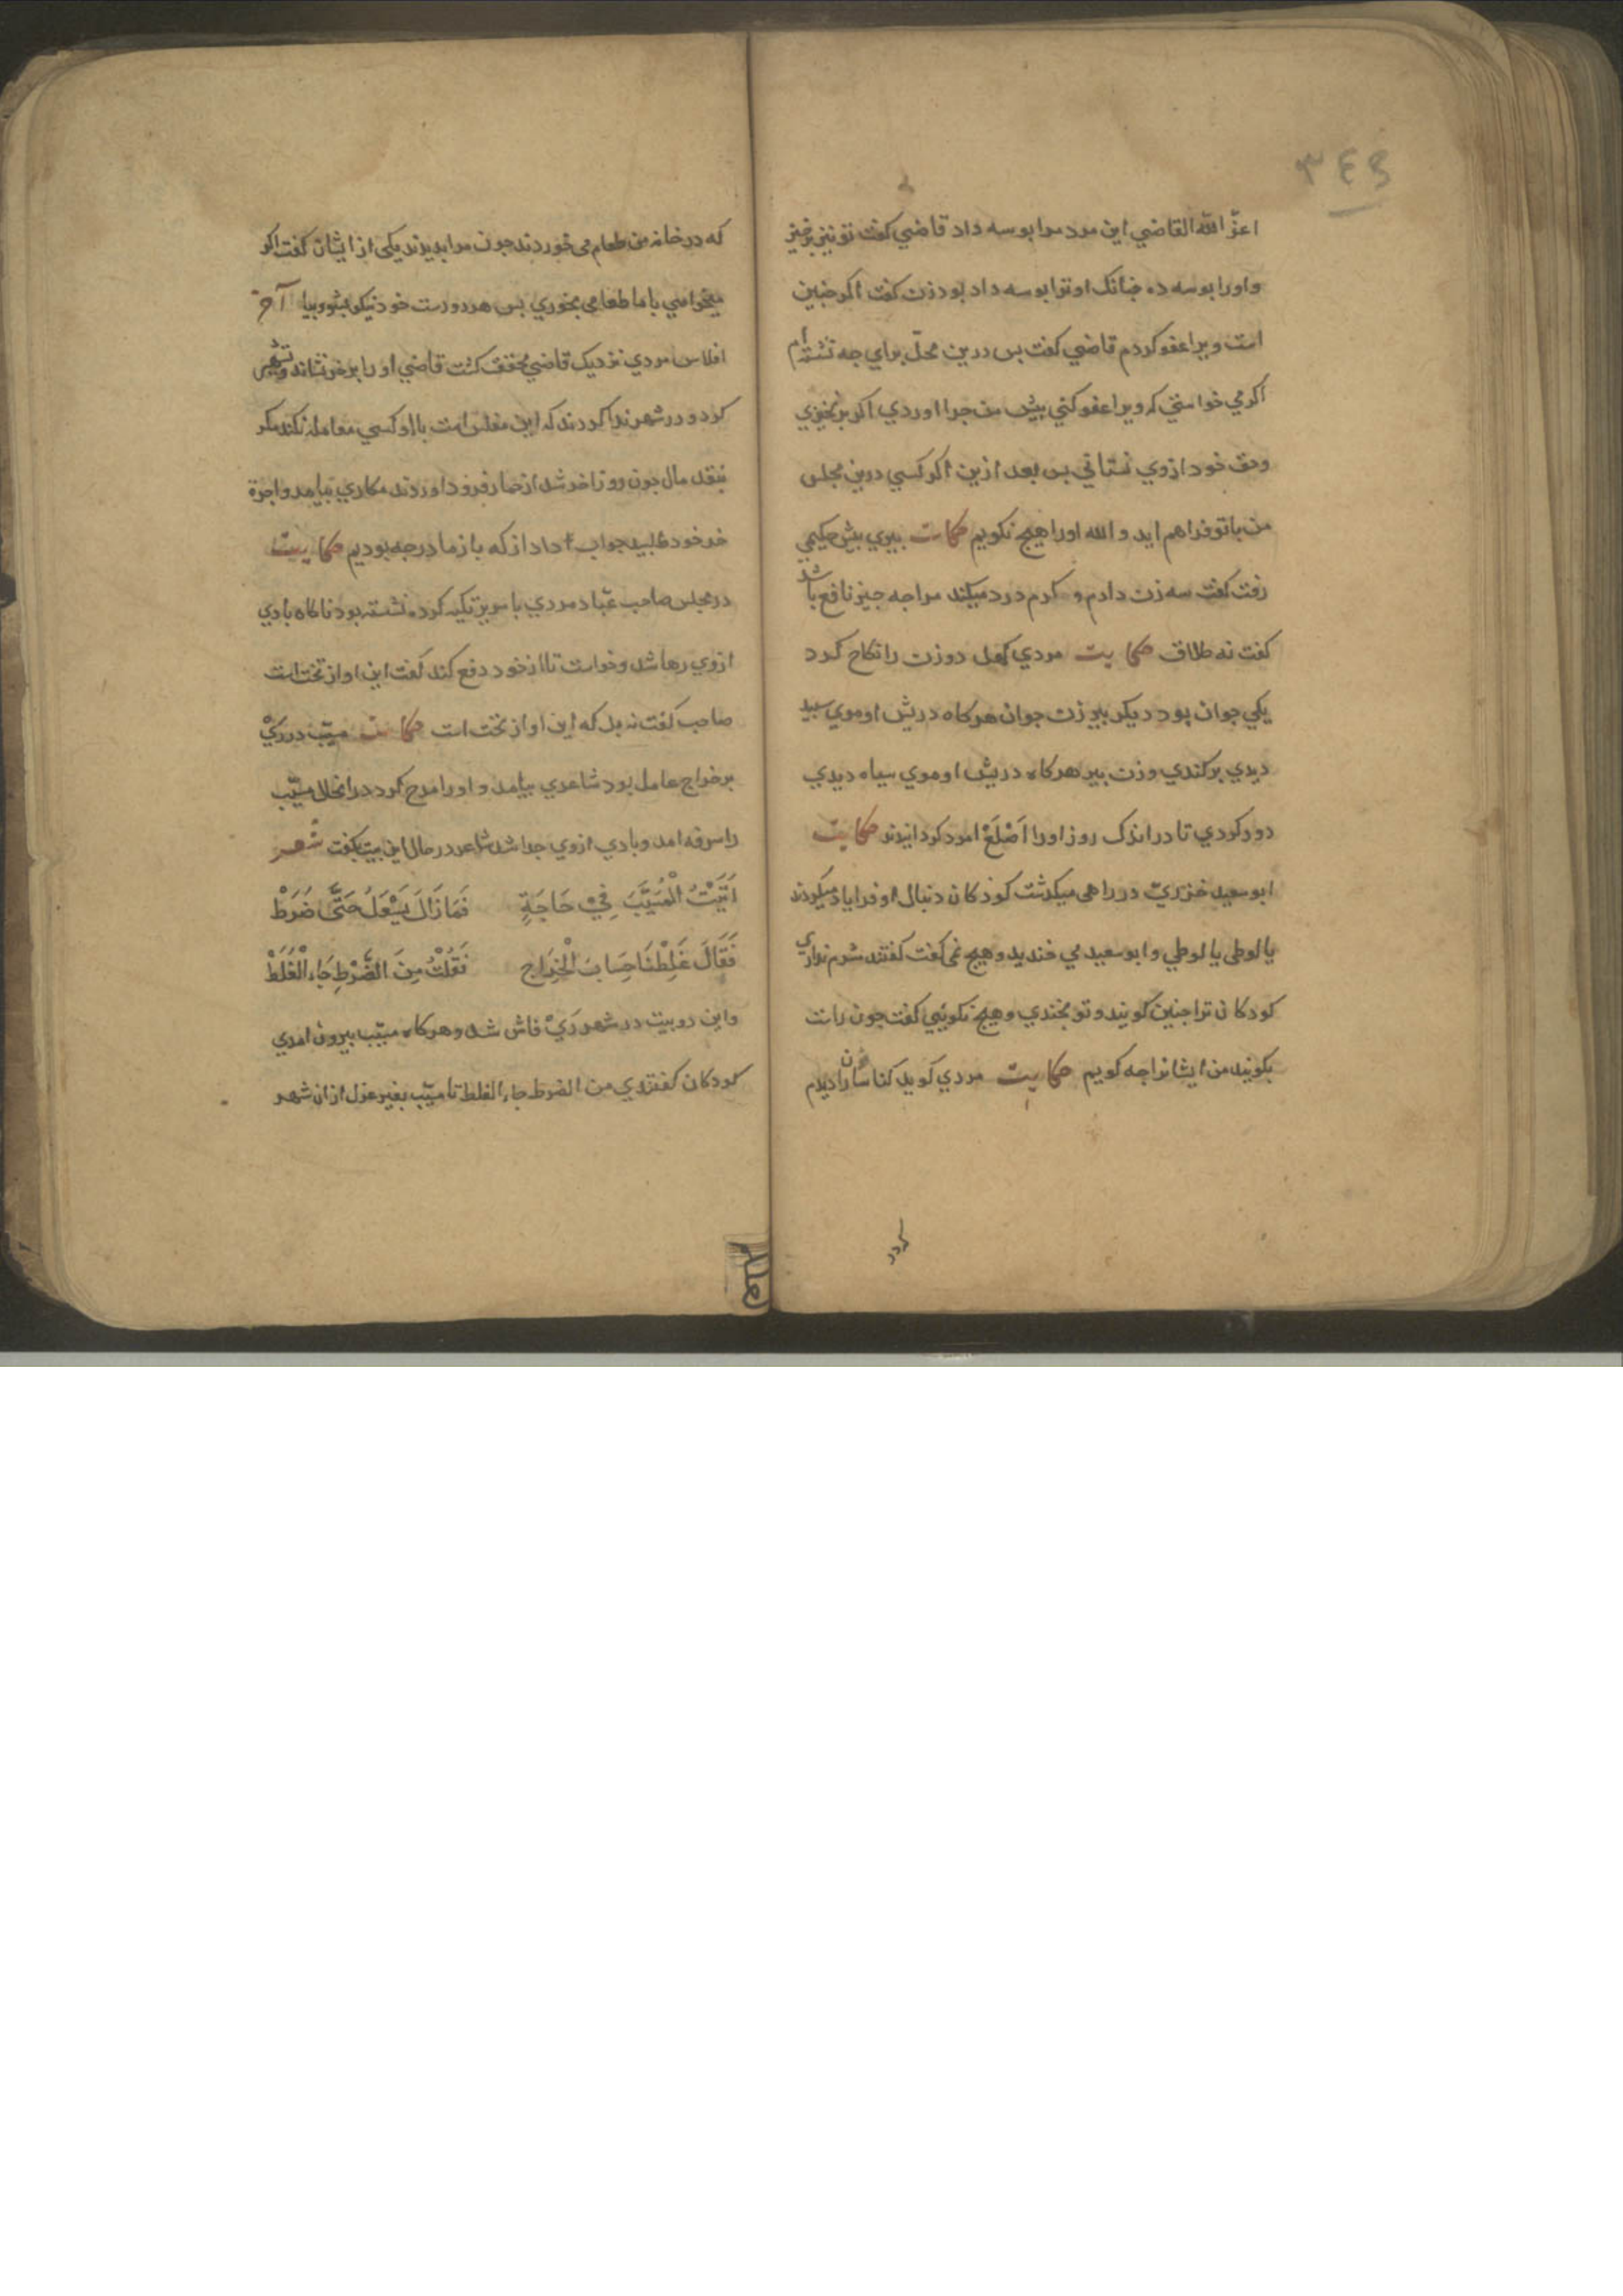 ٣٤٣
اعزّ الله القاضي این مرد مرا بوسه داد قاضي کفت تو نیز برخیز
واورا بوسه ده جنانک او ترا بوسه داد بود زن کفت اکر جنین
است ویرا عفو کردم قاضي کفت بس درین محلّ براي جه نشسته‌ام
اکر مي خواستي که ویرا عفو کني بیش من جرا اوردي اکر برنخیزي
وحق خود ازوي نستاني بس بعد ازین اکر کسي درین مجلس
من باتو فراهم اید والله اورا هیج نکویم حکایت بیري بیش حکیمي
رفت کفت سه زن دارم و کرم درد میکند مرا جه جیز نافع باشد
کفت نه طلاق حکایت مردي کهل دو زن را نکاح کرد
یکي جوان بود دیکر بیر زن جوان هرکاه در ریش او موي سبید
دیدي برکندي وزن بیر هرکاه در ریش او موي سیاه دیدي
دور کردي تا در اندک روز اورا اَصْلَعْ امرد کردانیدند حکایت
ابو سعید خزريّ در راهي میکدشت کودکان دنبال او فریاد میکردند
یا لوطي یا لوطي وابو سعید مي خندید وهیج نمي کفت کفتند شرم نداري
کودکان ترا جنین کویند و تو بخندي وهیج نکویي کفت جون راست
بکویند من ایشانرا جه کویم حکایت مردي کوید کناسانرا دیدم
که در خانه من طعام مي خوردند جون مرا بدیدند یکي از ایشان کفت اکر
میخواهي با ما طعامي بخوري بس هر دو دست خود نیکو بشو وبیا آخر
افلاس مردي نزدیک قاضي محقق کشت قاضي اورا بر خر نشاند وتشهیر
کرد و در شهر ندا کردند که این مفلس است با او کسي معامله نکند مکر
بنقد مال جون روز اخر شد از حمار فرود اوردند مکاري بیامد واجرة
خر خود طلبید جواب داد از که باز ما درجه بودیم حکایت
در مجلس صاحب عبّاد مردي با سریر تکیه کرده نشسته بود ناکاه بادي
ازوي رها شد وخواست تا از خود دفع کند کفت این اواز تخت است
صاحب کفت نه بل که این اواز تحت است حکایت مسیّب در ريّ
بر خراج عامل بود شاعري بیامد و اورا مدح کرد در انحال مسیّب
را سرفه امد وبادي ازوي جدا شد شاعر در حال این بیت بکفت شعر
اَتَيْتُ الْمُسَيَّبَ فِيْ حَاجَةٍ فَمَا زَالَ يَسْعَلُ حَتَّى ضَرَطْ
فَقَالَ غَلِطْنَا حِسَابَ الْخَرَاجِ فَقُلْتُ مِنَ الضَّرْطِ جَاءَ الْغَلَطْ
واین دو بیت در شهر رَيْ فاش شد وهرکاه مسیّب بیرون امدي
کودکان کفتندي من الضرط جاء الغلط تا مسیّب بغیر عزل ازان شهر